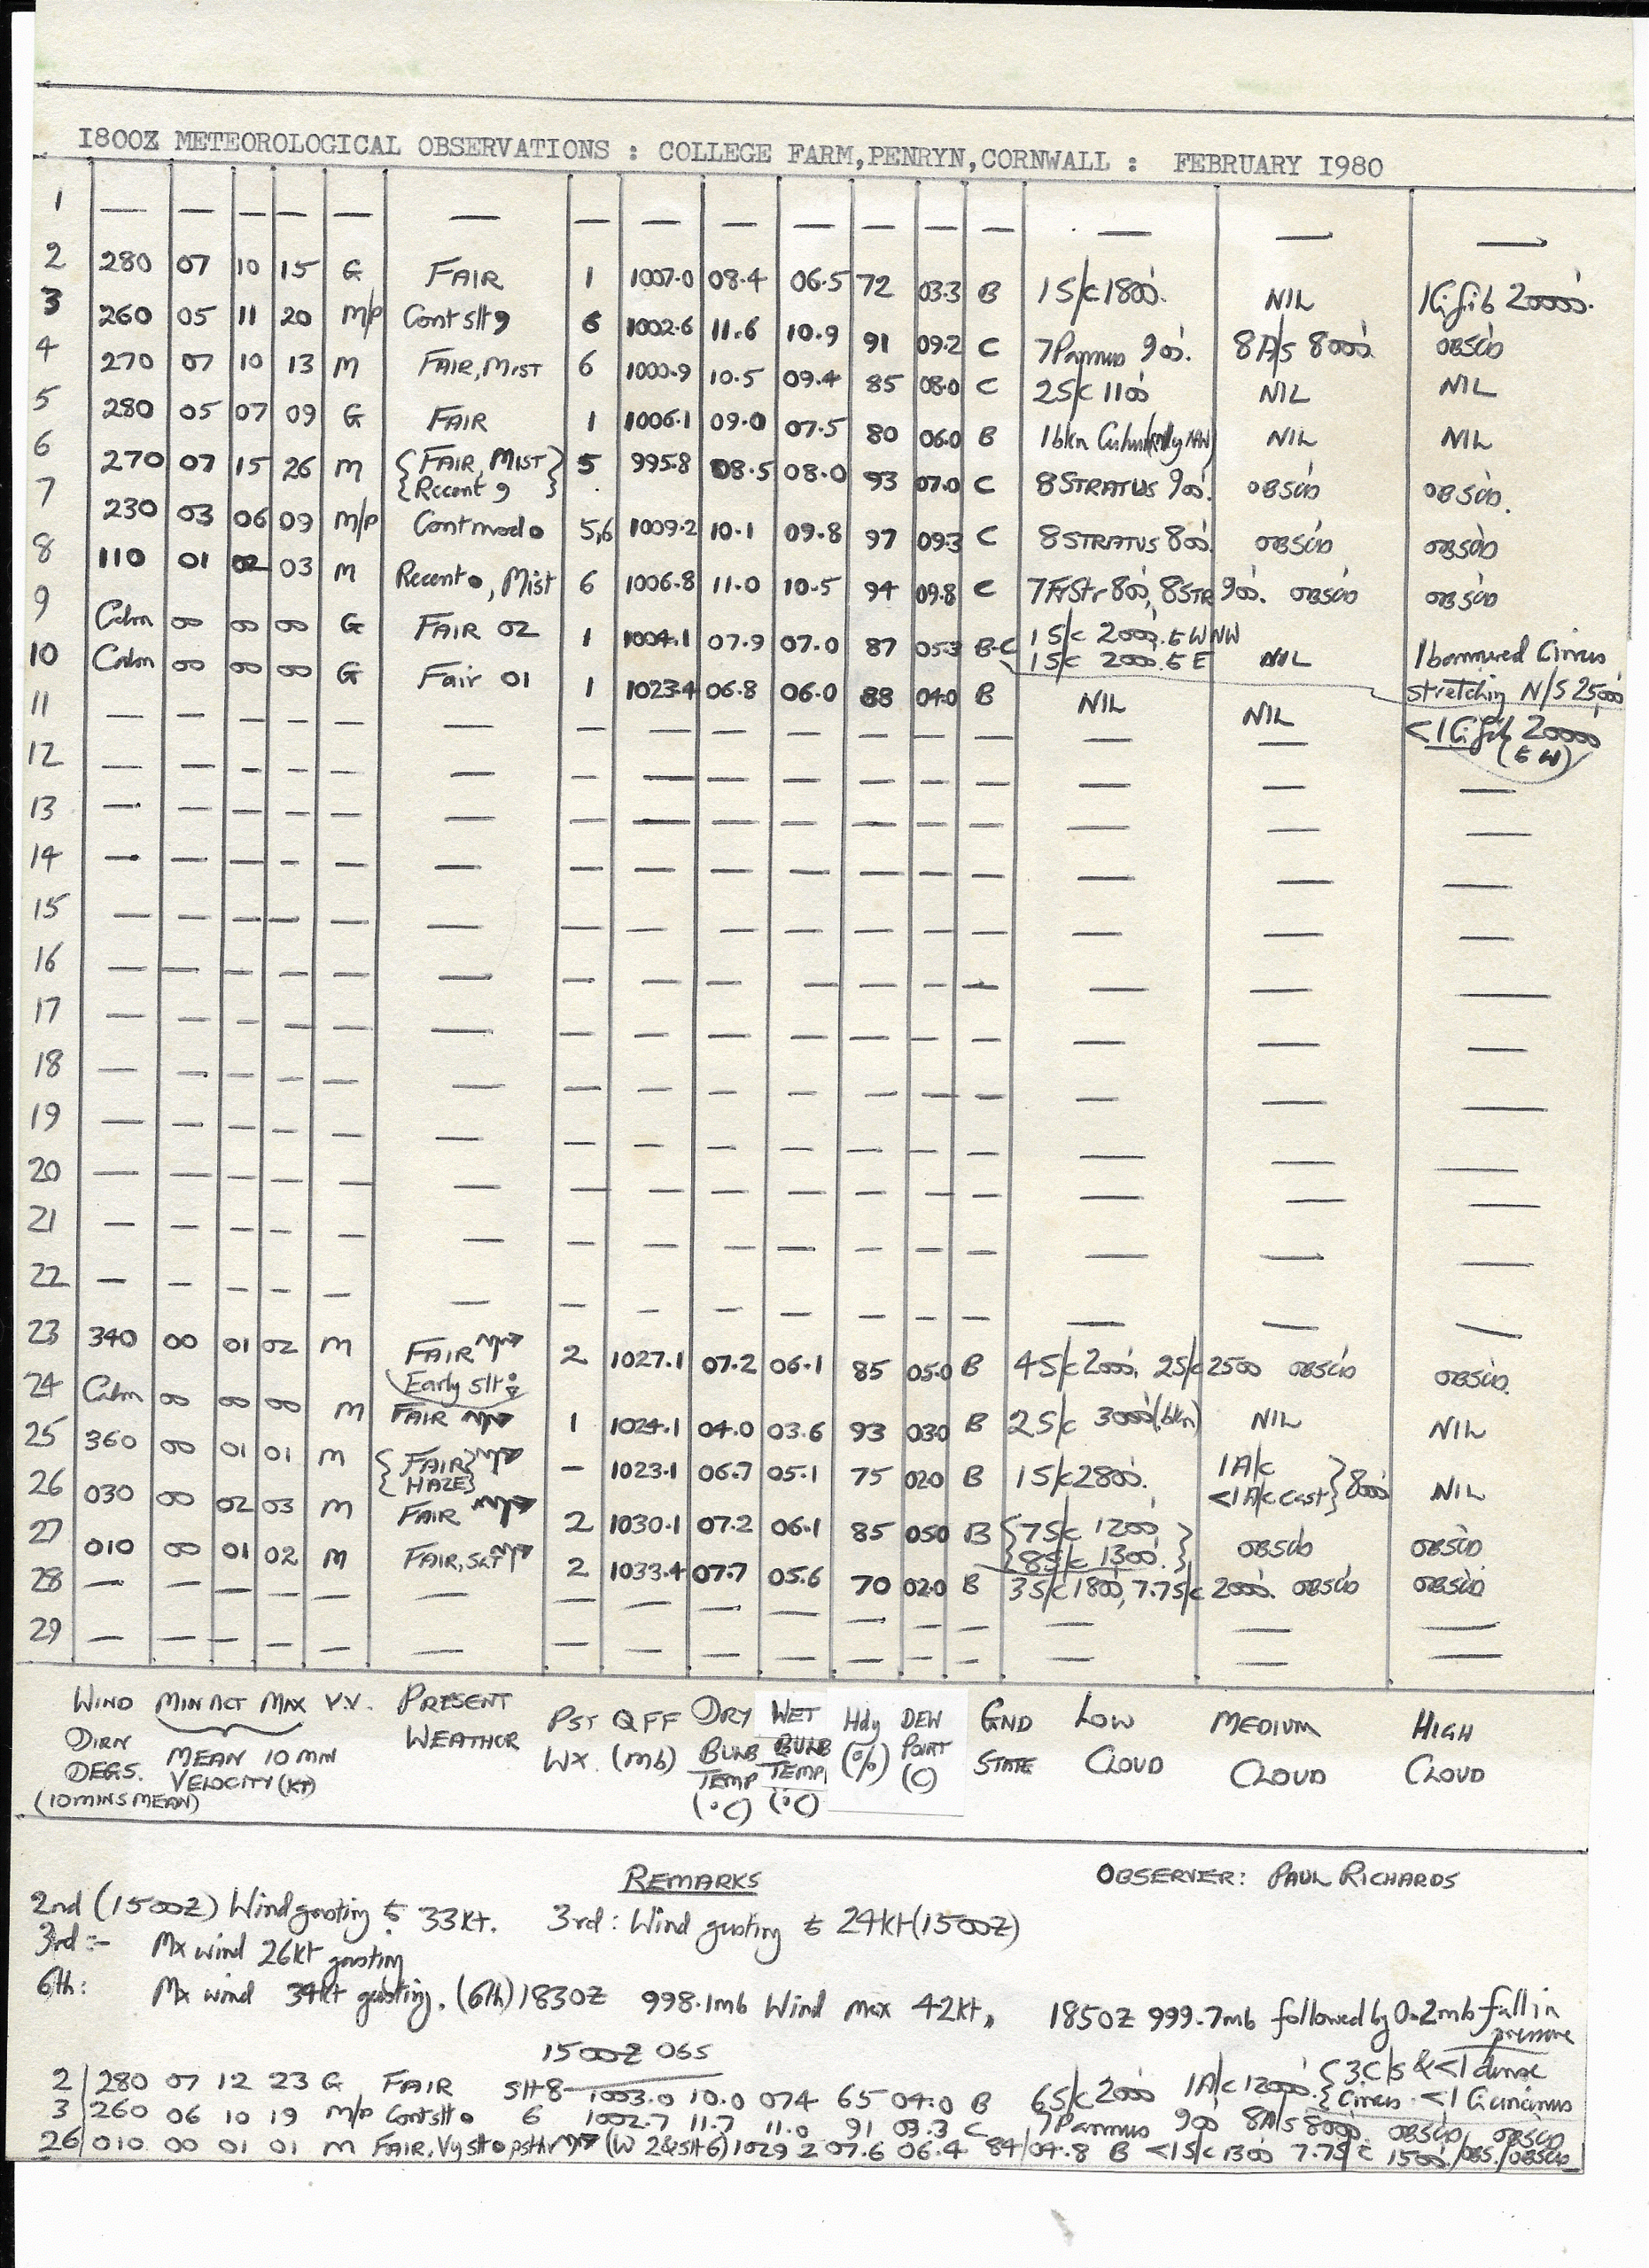 1800Z METEOROLOGICAL OBSERVATIONS : COLLEGE FARM,PENRYN,CORNWALL : FEBRUARY 1980
1 — — — — — — — — — — — — — — — —
2 280 07 10 15 G FAIR 1 1007.0 08.4 06.5 72 03.3 B 1 S/c 1800'. NIL 1Ci fib 20000'.
3 260 05 11 20 M/P Cont slt 9 6 1002.6 11.6 10.9 91 09.2 C 7Pannus 900'. 8A/s 8000' OBSCD
4 270 07 10 13 M FAIR, MIST 6 1000.9 10.5 09.4 85 08.0 C 2S/c 1100' NIL NIL
5 280 05 07 09 G FAIR 1 1006.1 09.0 07.5 80 06.0 B 1bkn NIL NIL
6 270 07 15 26 M {FAIR, MIST} {Recent 9} 5 995.8 08.5 08.0 93 07.0 C 8STRATUS 900'. OBSCD OBSCD.
7 230 03 06 09 M/P Cont mod • 5,6 1009.2 10.1 09.8 97 09.3 C 8STRATUS 800'. OBSCD OBSCD
8 110 01 02 03 M Recent •, Mist 6 1006.8 11.0 10.5 94 09.8 C 7FrStr 800', 8STR 900'. OBSCD OBSCD
9 Calm 00 00 00 G FAIR 02 1 1004.1 07.9 07.0 87 05.3 B-C 1 S/c 2000'. to WNW 1 S/c 2000'. to E NIL 1 Cirrus stretching N/S 25,000'
10 Calm 00 00 00 G Fair 01 1 1023.4 06.8 06.0 88 04.0 B NIL NIL <1Ci fib 20000' (to W)
11 — — — — — — — — — — — — — — —
12 — — — — — — — — — — — — — — — —
13 — — — — — — — — — — — — — — — —
14 — — — — — — — — — — — — — — — —
15 — — — — — — — — — — — — — — — —
16 — — — — — — — — — — — — — — — —
17 — — — — — — — — — — — — — — — —
18 — — — — — — — — — — — — — — — —
19 — — — — — — — — — — — — — — — —
20 — — — — — — — — — — — — — — — —
21 — — — — — — — — — — — — — — — —
22 — — — — — — — — — — — — — — — —
23 340 00 01 02 M FAIR Early slt 2 1027.1 07.2 06.1 85 05.0 B 4S/c 2000', 2S/c 2500 OBSCD OBSCD.
24 Calm 00 00 00 M FAIR 1 1024.1 04.0 03.6 93 03.0 B 2 S/c 3000' (bkn) NIL NIL
25 360 00 01 01 M {FAIR} {HAZE} — 1023.1 06.7 05.1 75 02.0 B 1 S/c 2800'. 1A/c <1A/c cast} 8000' NIL
26 030 00 02 03 M FAIR 2 1030.1 07.2 06.1 85 05.0 B {7S/c 1200'} {8S/c 1300'.} OBSCD OBSCD
27 010 00 01 02 M FAIR, 2 1033.4 07.7 05.6 70 02.0 B 3 S/c 1800', 7.7S/c 2000'. OBSCD OBSCD
28 — — — — — — — — — — — — — — — —
29 — — — — — — — — — — — — — — — —
WIND MIN ACT MAX V.V. PRESENT PST QFF DRY WET Hdy DEW GND LOW MEDIUM HIGH
DIRN WEATHOR WX. (mb) BULB BULB (%) POINT STATE CLOUD CLOUD CLOUD
DEGS. MEAN 10 MIN TEMP TEMP (C)
(10 MINS MEAN) VELOCITY (KT) (°C) (°C)
REMARKS OBSERVER: PAUL RICHARDS
2nd (1500Z) Wind gusting to 33kt. 3rd: Wind gusting to 24kt (1500Z)
3rd :- Mx wind 26kt gusting
6th: Mx wind 34kt gusting. (6th) 1830Z 998.1mb Wind max 42kt, 1850Z 999.7mb followed by 0.2mb fall in pressure
1500Z OBS
2 280 07 12 23 G FAIR slt 8 1003.0 10.0 07.4 65 04.0 B 6S/c 2000 1A/c 12000'. {3.C/s & <1 dense {Cirrus. <1 Ci uncinus
3 260 06 10 19 M/P Cont slt • 6 1002.7 11.7 11.0 91 09.3 C 7Pannus 900 8A/s 8000'. OBSCD OBSCD
26 010 00 01 01 M FAIR, Vy slt • (W 2 & slt 6) 1029.2 07.6 06.4 84 04.8 B <1S/c 1300 7.7S/c 1500'. /OBS./OBSCD